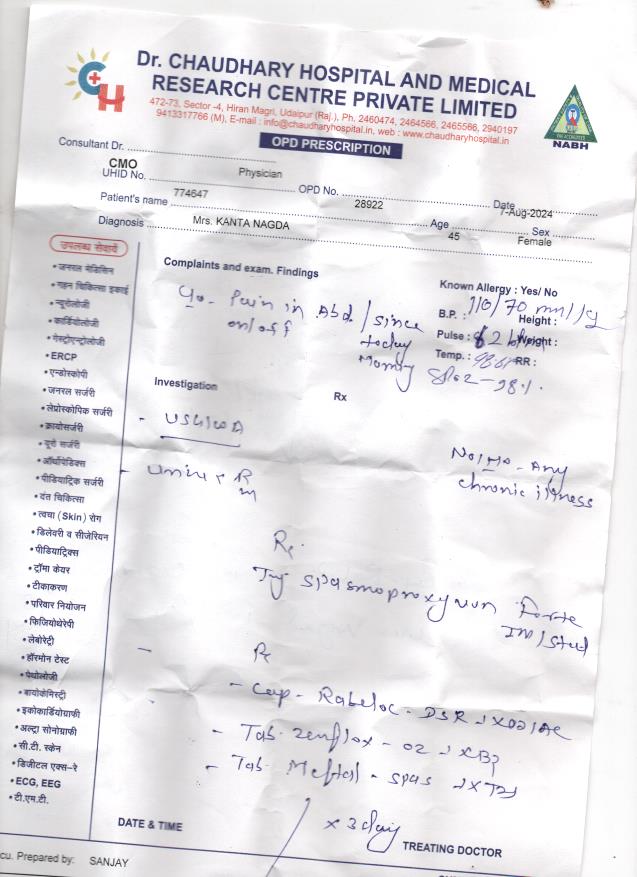 Dr. CHAUDHARY HOSPITAL AND MEDICAL
RESEARCH CENTRE PRIVATE LIMITED
472-73, Sector -4, Hiran Magri, Udaipur (Raj.), Ph. 2460474, 2464566, 2465566, 2940197
9413317766 (M), E-mail : info@chaudharyhospital.in, web : www.chaudharyhospital.in
OPD PRESCRIPTION
NABH
Consultant Dr.
CMO
UHID No. Physician OPD No. Date
774647 28922 7-Aug-2024
Patient's name Age Sex
Mrs. KANTA NAGDA 45 Female
Diagnosis
उपलब्ध सेवायें
• जनरल मेडिसिन
• गहन चिकित्सा इकाई
• न्यूरोलोजी
• कार्डियोलोजी
• गेस्ट्रोएन्ट्रोलोजी
• ERCP
• एन्डोस्कोपी
• जनरल सर्जरी
• लेप्रोस्कोपिक सर्जरी
• क्रायोसर्जरी
• यूरो सर्जरी
• ऑर्थोपेडिक्स
• पीडियाट्रिक सर्जरी
• दंत चिकित्सा
• त्वचा (Skin) रोग
• डिलेवरी व सीजेरियन
• पीडियाट्रिक्स
• ट्रॉमा केयर
• टीकाकरण
• परिवार नियोजन
• फिजियोथेरेपी
• लेबोरेट्री
• हॉरमोन टेस्ट
• पेथोलोजी
• बायोकेमिस्ट्री
• इकोकार्डियोग्राफी
• अल्ट्रा सोनोग्राफी
• सी.टी. स्केन
• डिजीटल एक्स-रे
• ECG, EEG
• टी.एम.टी.
Complaints and exam. Findings
Known Allergy : Yes/ No
B.P. : 110/70 mm/Hg
Height :
Pulse : 82 Weight :
Temp. : RR :
SPO2 - 98%.
C/o - Pain in Abd / since
on/off today
Morning
Investigation
Rx
- USG/WA
- Urine R
M
No/H/o - Any
chronic illness
Rx
Inj Spasmoproxyvon Forte
IM/Stat
Rx
- Cap - Rabeloc - DSR
- Tab. Zenflox - OZ
- Tab. Meftal - Spas
x 3 day
DATE & TIME
TREATING DOCTOR
cu. Prepared by: SANJAY